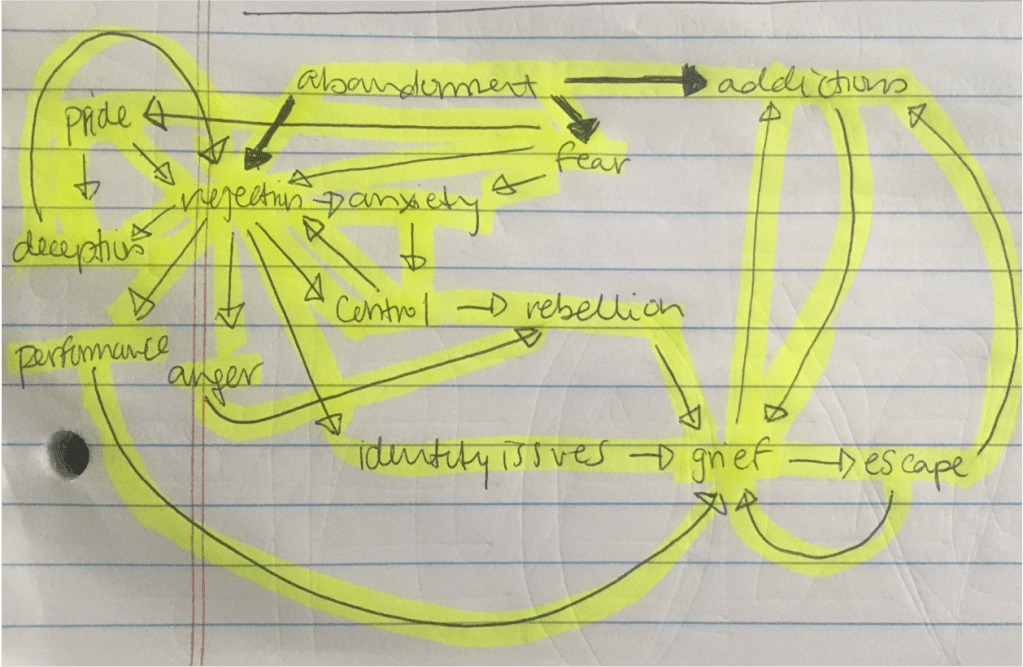 abandonment addictions
pride
fear
rejection anxiety
deception
control rebellion
performance
anger
identity issues grief escape